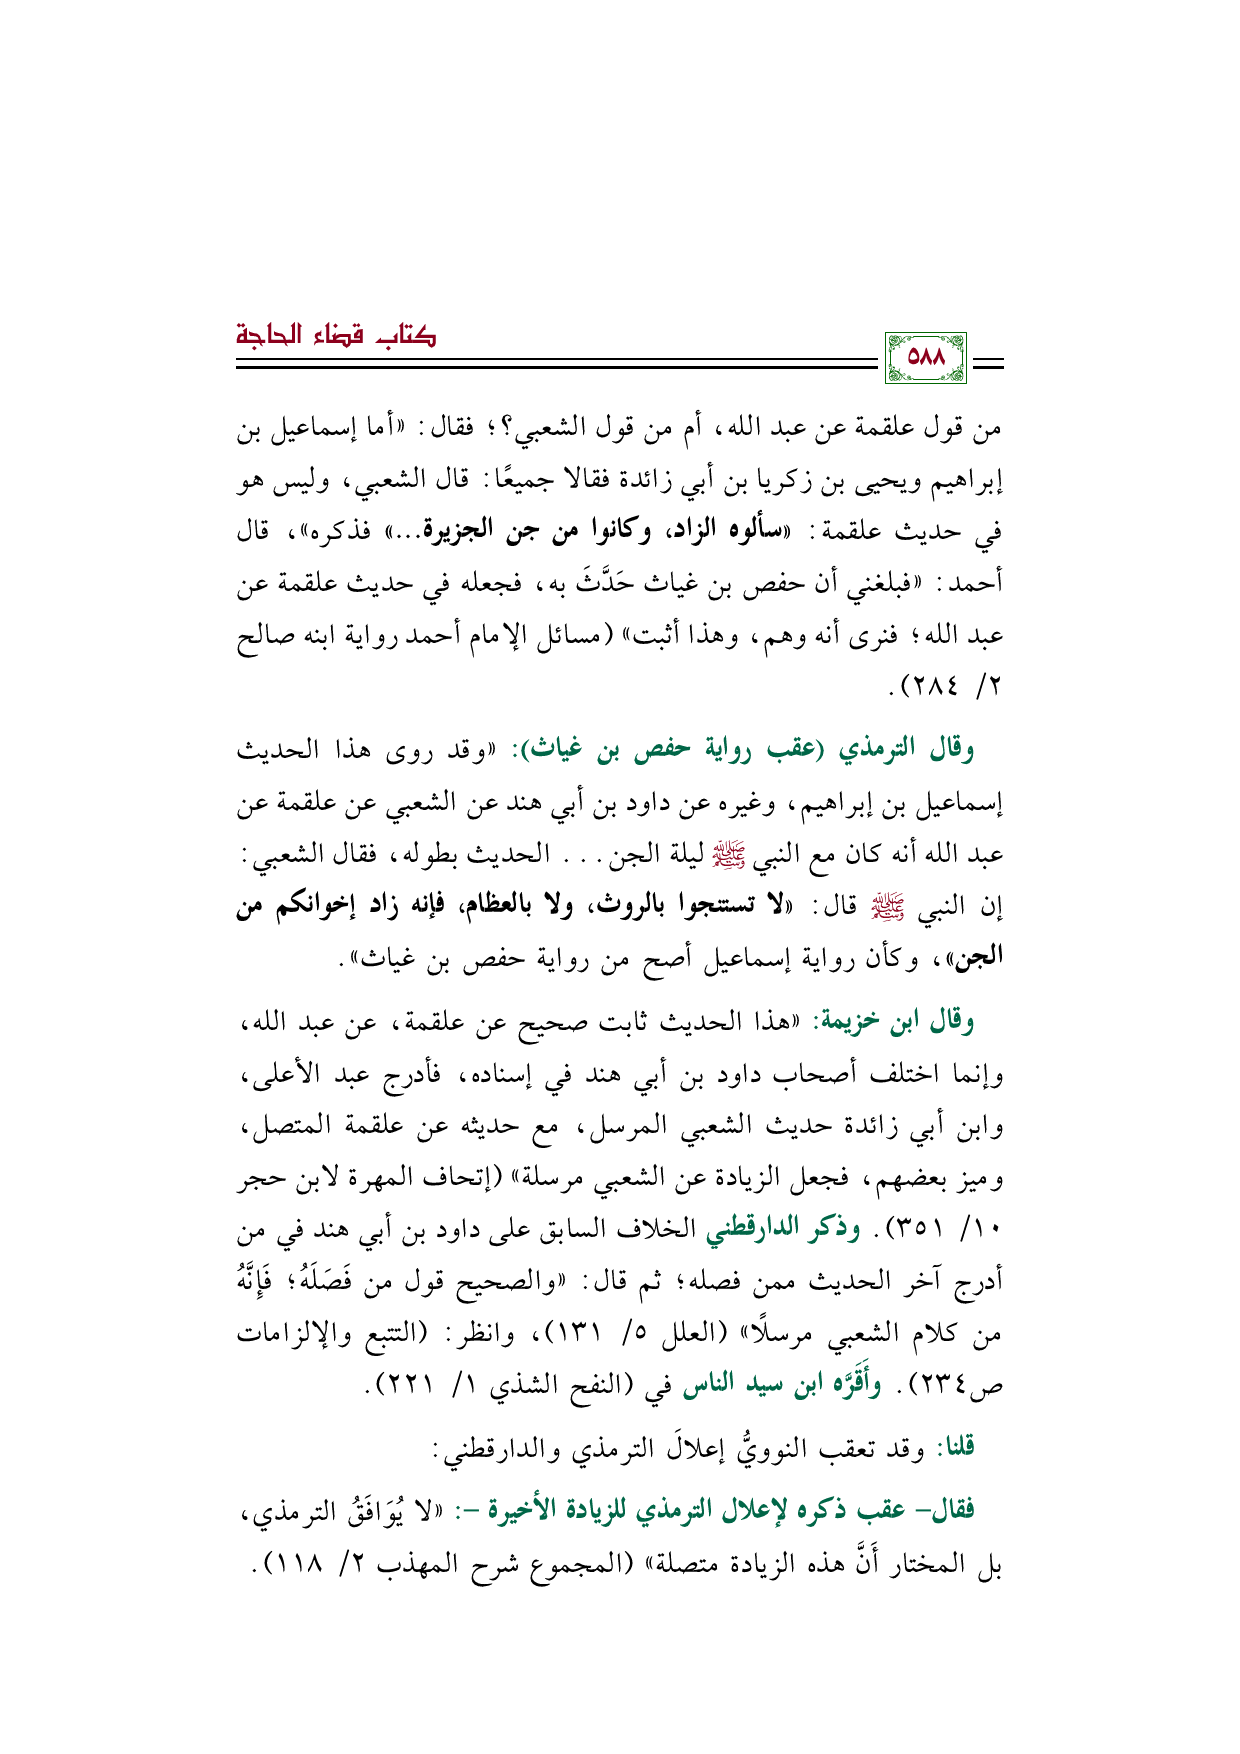 كتاب قضاء الحاجة
٥٨٨
من قول علقمة عن عبد الله، أم من قول الشعبي؟؛ فقال: «أما إسماعيل بن
إبراهيم ويحيى بن زكريا بن أبي زائدة فقالا جميعًا: قال الشعبي، وليس هو
في حديث علقمة: «سألوه الزاد، وكانوا من جن الجزيرة...» فذكره»، قال
أحمد: «فبلغني أن حفص بن غياث حَدَّثَ به، فجعله في حديث علقمة عن
عبد الله؛ فنرى أنه وهم، وهذا أثبت» (مسائل الإمام أحمد رواية ابنه صالح
٢/ ٢٨٤).
وقال الترمذي (عقب رواية حفص بن غياث): «وقد روى هذا الحديث
إسماعيل بن إبراهيم، وغيره عن داود بن أبي هند عن الشعبي عن علقمة عن
عبد الله أنه كان مع النبي ﷺ ليلة الجن... الحديث بطوله، فقال الشعبي:
إن النبي ﷺ قال: «لا تستنجوا بالروث، ولا بالعظام، فإنه زاد إخوانكم من
الجن»، وكأن رواية إسماعيل أصح من رواية حفص بن غياث».
وقال ابن خزيمة: «هذا الحديث ثابت صحيح عن علقمة، عن عبد الله،
وإنما اختلف أصحاب داود بن أبي هند في إسناده، فأدرج عبد الأعلى،
وابن أبي زائدة حديث الشعبي المرسل، مع حديثه عن علقمة المتصل،
وميز بعضهم، فجعل الزيادة عن الشعبي مرسلة» (إتحاف المهرة لابن حجر
١٠/ ٣٥١). وذكر الدارقطني الخلاف السابق على داود بن أبي هند في من
أدرج آخر الحديث ممن فصله؛ ثم قال: «والصحيح قول من فَصَلَهُ؛ فَإِنَّهُ
من كلام الشعبي مرسلًا» (العلل ٥/ ١٣١)، وانظر: (التتبع والإلزامات
ص٢٣٤). وأَقَرَّه ابن سيد الناس في (النفح الشذي ١/ ٢٢١).
قلنا: وقد تعقب النوويُّ إعلالَ الترمذي والدارقطني:
فقال- عقب ذكره لإعلال الترمذي للزيادة الأخيرة -: «لا يُوَافَقُ الترمذي،
بل المختار أَنَّ هذه الزيادة متصلة» (المجموع شرح المهذب ٢/ ١١٨).